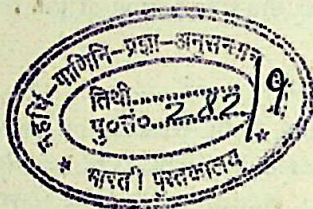 महर्षि-पाणिनि-प्रज्ञा-अनुसन्धान
तिथी..............
पु०सं० 282/9
* भारती पुस्तकालय *